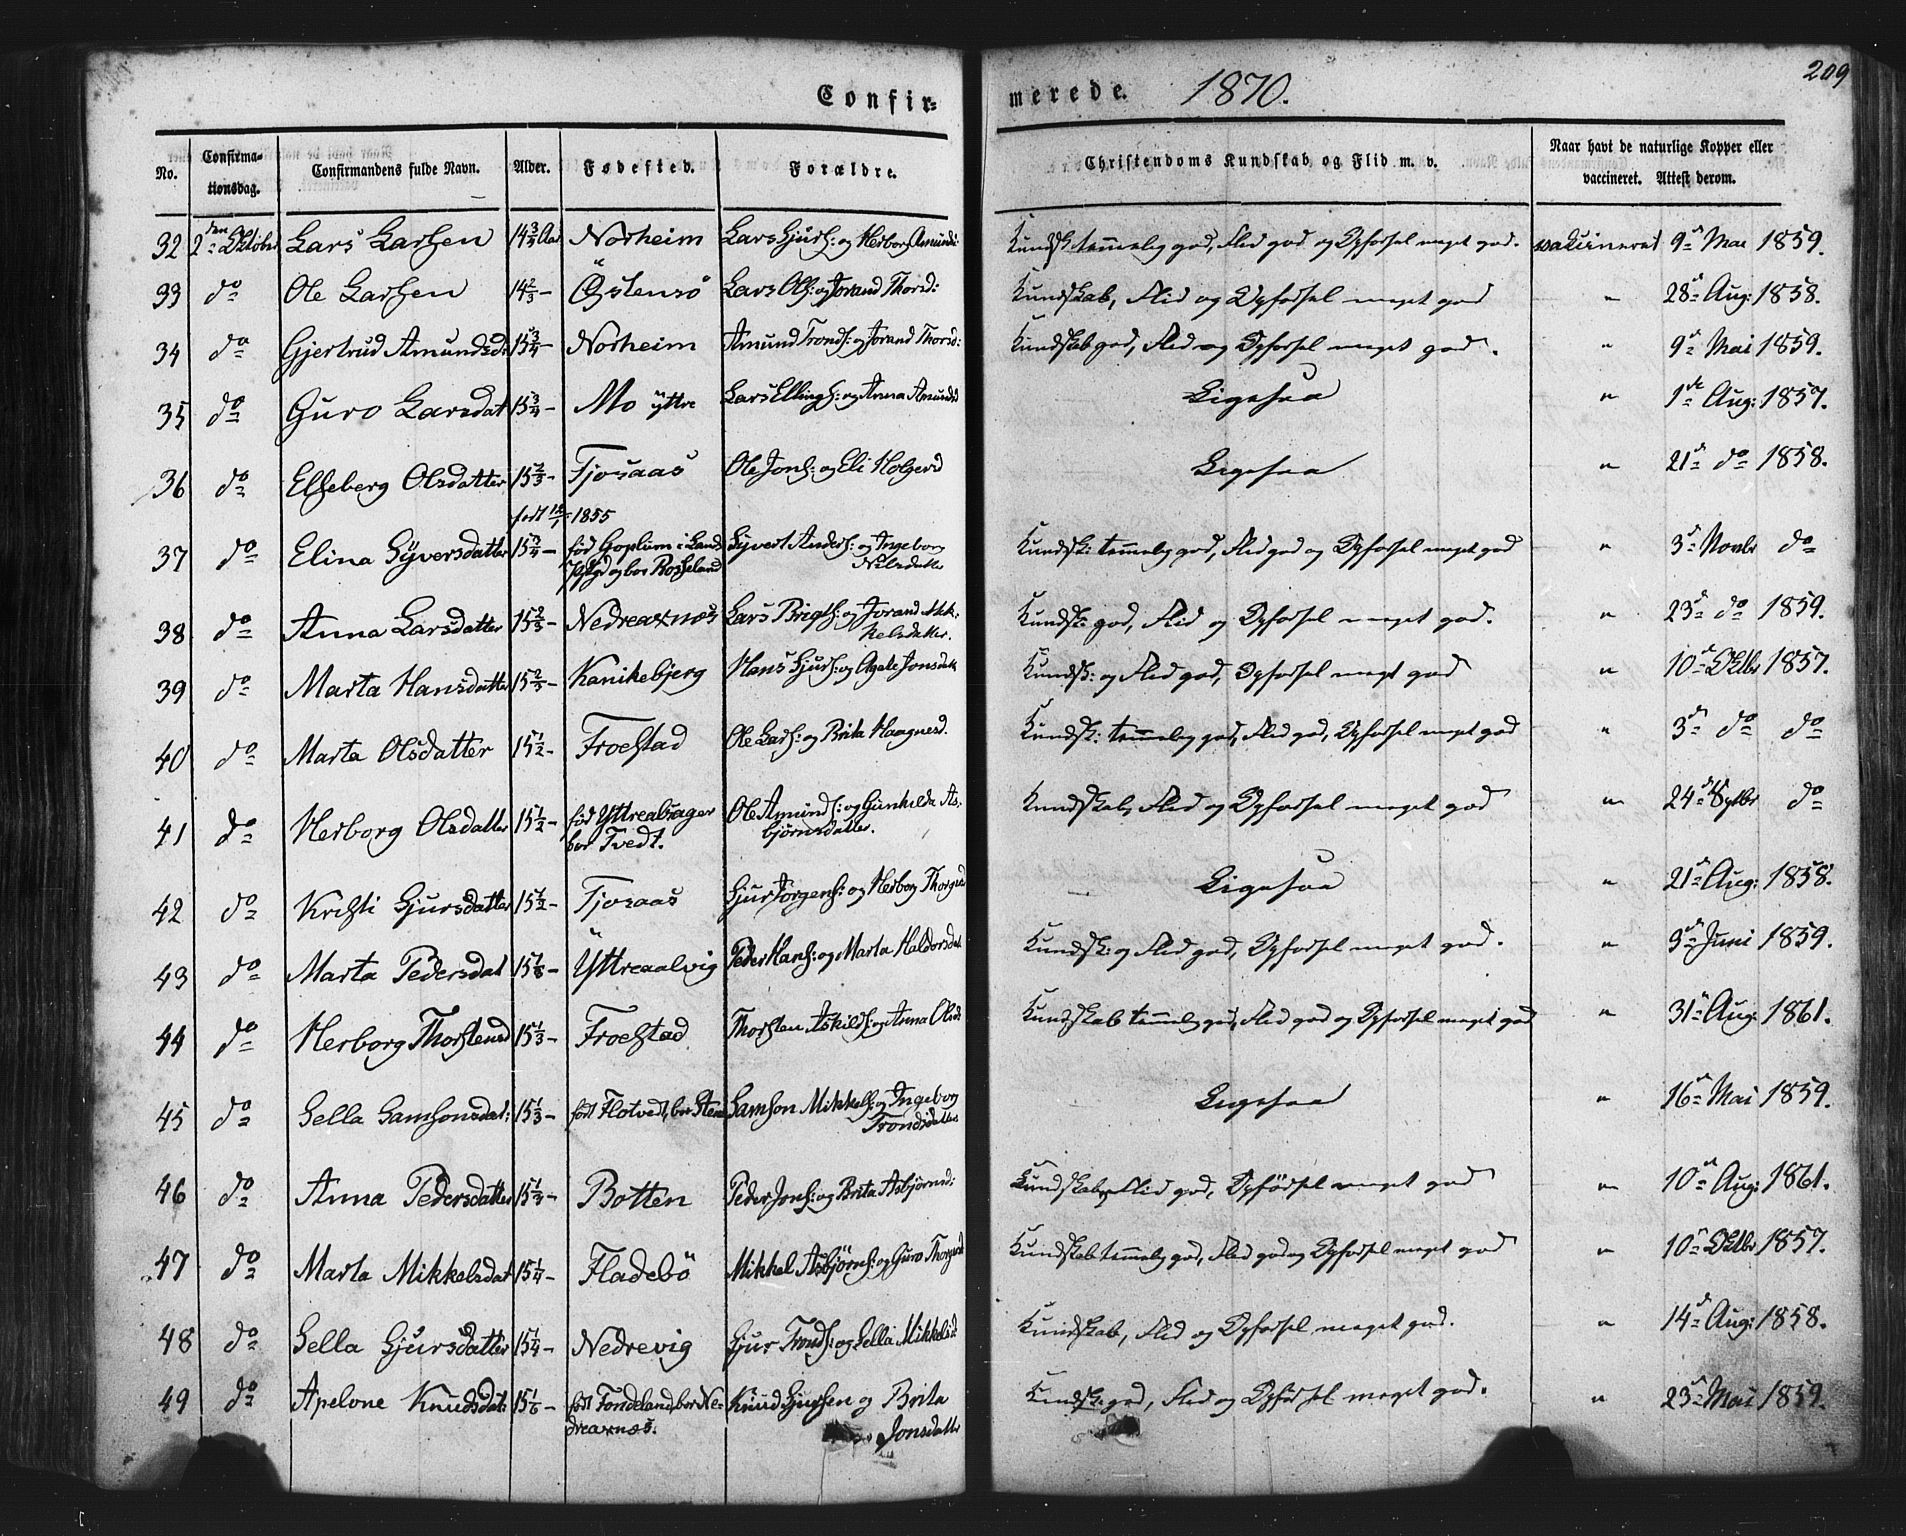 Confir- merede. 1870. 209
No. Confirma- tionsdag. Confirmandens fulde Navn. Alder. Fødested. Forældre. Christendoms Kundskab og Flid m. v. Naar havt de naturlige Kopper eller vaccineret. Attest derom.
32 2den Oktober Lars Larsen 14 3/4 Aar Norheim Lars Gjurs: og Herborg Amunds: Kundsk: temmelig god, Flid god og Opførsel meget god. vakcineret 9de Mai 1859.
33 do Ole Larsen 14 2/3 – Östensö Lars Ols: og Jorand Thorsd: Kundskab, Flid og Opførsel meget god " 28de Aug: 1858.
34 do Gjertrud Amundsd: 15 3/4 – Norheim Amund Tronds: og Jorand Thorsd: Kundskab god, Flid og Opførsel meget god. " 9de Mai 1859.
35 do Guro Larsdat 15 3/4 – Mo ÿttre Lars Ellings: og Anna Amundsd Ligesaa " 1ste Aug: 1857.
36 do Elseberg Olsdatter 15 2/3 – Tjosaas Ole Jons: og Eli Holgerd Ligesaa " 21de do 1858.
født 12/1 1855
37 do Elina Syversdatter 15 3/4 – fød Goplum i Lands Pstgd og bor Rosseland Syvert Anders: og Ingeborg Nilsdatter Kundsk: temmelig god, Flid god og Opførsel meget god " 3de Novbr do
38 do Anna Larsdatter 15 2/3 – Nedreaxnæs Lars Brigts: og Jorand Mik- kelsdatter. Kundsk: god, Flid og Opførsel meget god. " 23de do 1859.
39 do Marta Hansdatter 15 2/3 – Kanikebjerg Hans Gjurs: og Agate Jonsdat Kundsk: og Flid god, Opførsel meget god " 10de Oktbr 1857.
40 do Marta Olsdatter 15 1/2 – Froestad Ole Lars: og Brita Haagnesd. Kundsk: temmelig god, Flid god, Opførsel meget god " 3de do do
41 do Herborg Olsdatter 15 1/2 – fød Yttreabsager bor Tvedt. Ole Amunds: og Gunhilda As- bjørnsdatter. Kundskab, Flid og Opførsel meget god " 24de Septbr do
42 do Kristi Gjursdatter 15 1/2 – Tjosaas Gjur Jørgens: og Herborg Thorgsd Ligesaa " 21de Aug: 1858.
43 do Marta Pedersdat 15 – Yttreaalvig Peder Hans: og Marta Haldorsdat Kundsk: og Flid god, Opførsel meget god. " 3de Juni 1859.
44 do Herborg Thorstensd 15 1/3 – Froestad Thorsten Askilds: og Anna Olsd: Kundskab temmelig god, Flid god og Opførsel meget god " 31te Aug: 1861.
45 do Sella Samsonsdat: 15 1/3 – født Flotvedt, bor Stene Samson Mikkels: og Ingeborg Trondsdatter Ligesaa " 16de Mai 1859.
46 do Anna Pedersdatter 15 1/3 – Botten Peder Jons: og Brita Asbjörnsd: Kundskab, Flid god, Opførsel meget god " 10de Aug: 1861.
47 do Marta Mikkelsdat 15 1/4 – Fladebö Mikkel Asbjörns: og Guro Thorgsd Kundskab temmelig god, Flid god og Opførsel meget god " 10de Oktbr 1857.
48 do Sella Gjursdatter 15 1/4 – Nedrevig Gjur Tronds: og Sella Mikkelsd Kundskab, Flid og Opførsel meget god. " 14de Aug: 1858.
49 do Apelone Knudsdat: 15 1/6 – født Tondeland, bor Ne- dreaxnæs. Knud Gjursen og Brita Jonsdatter Kundsk: god, Flid og Opførsel meget god. " 23de Mai 1859.